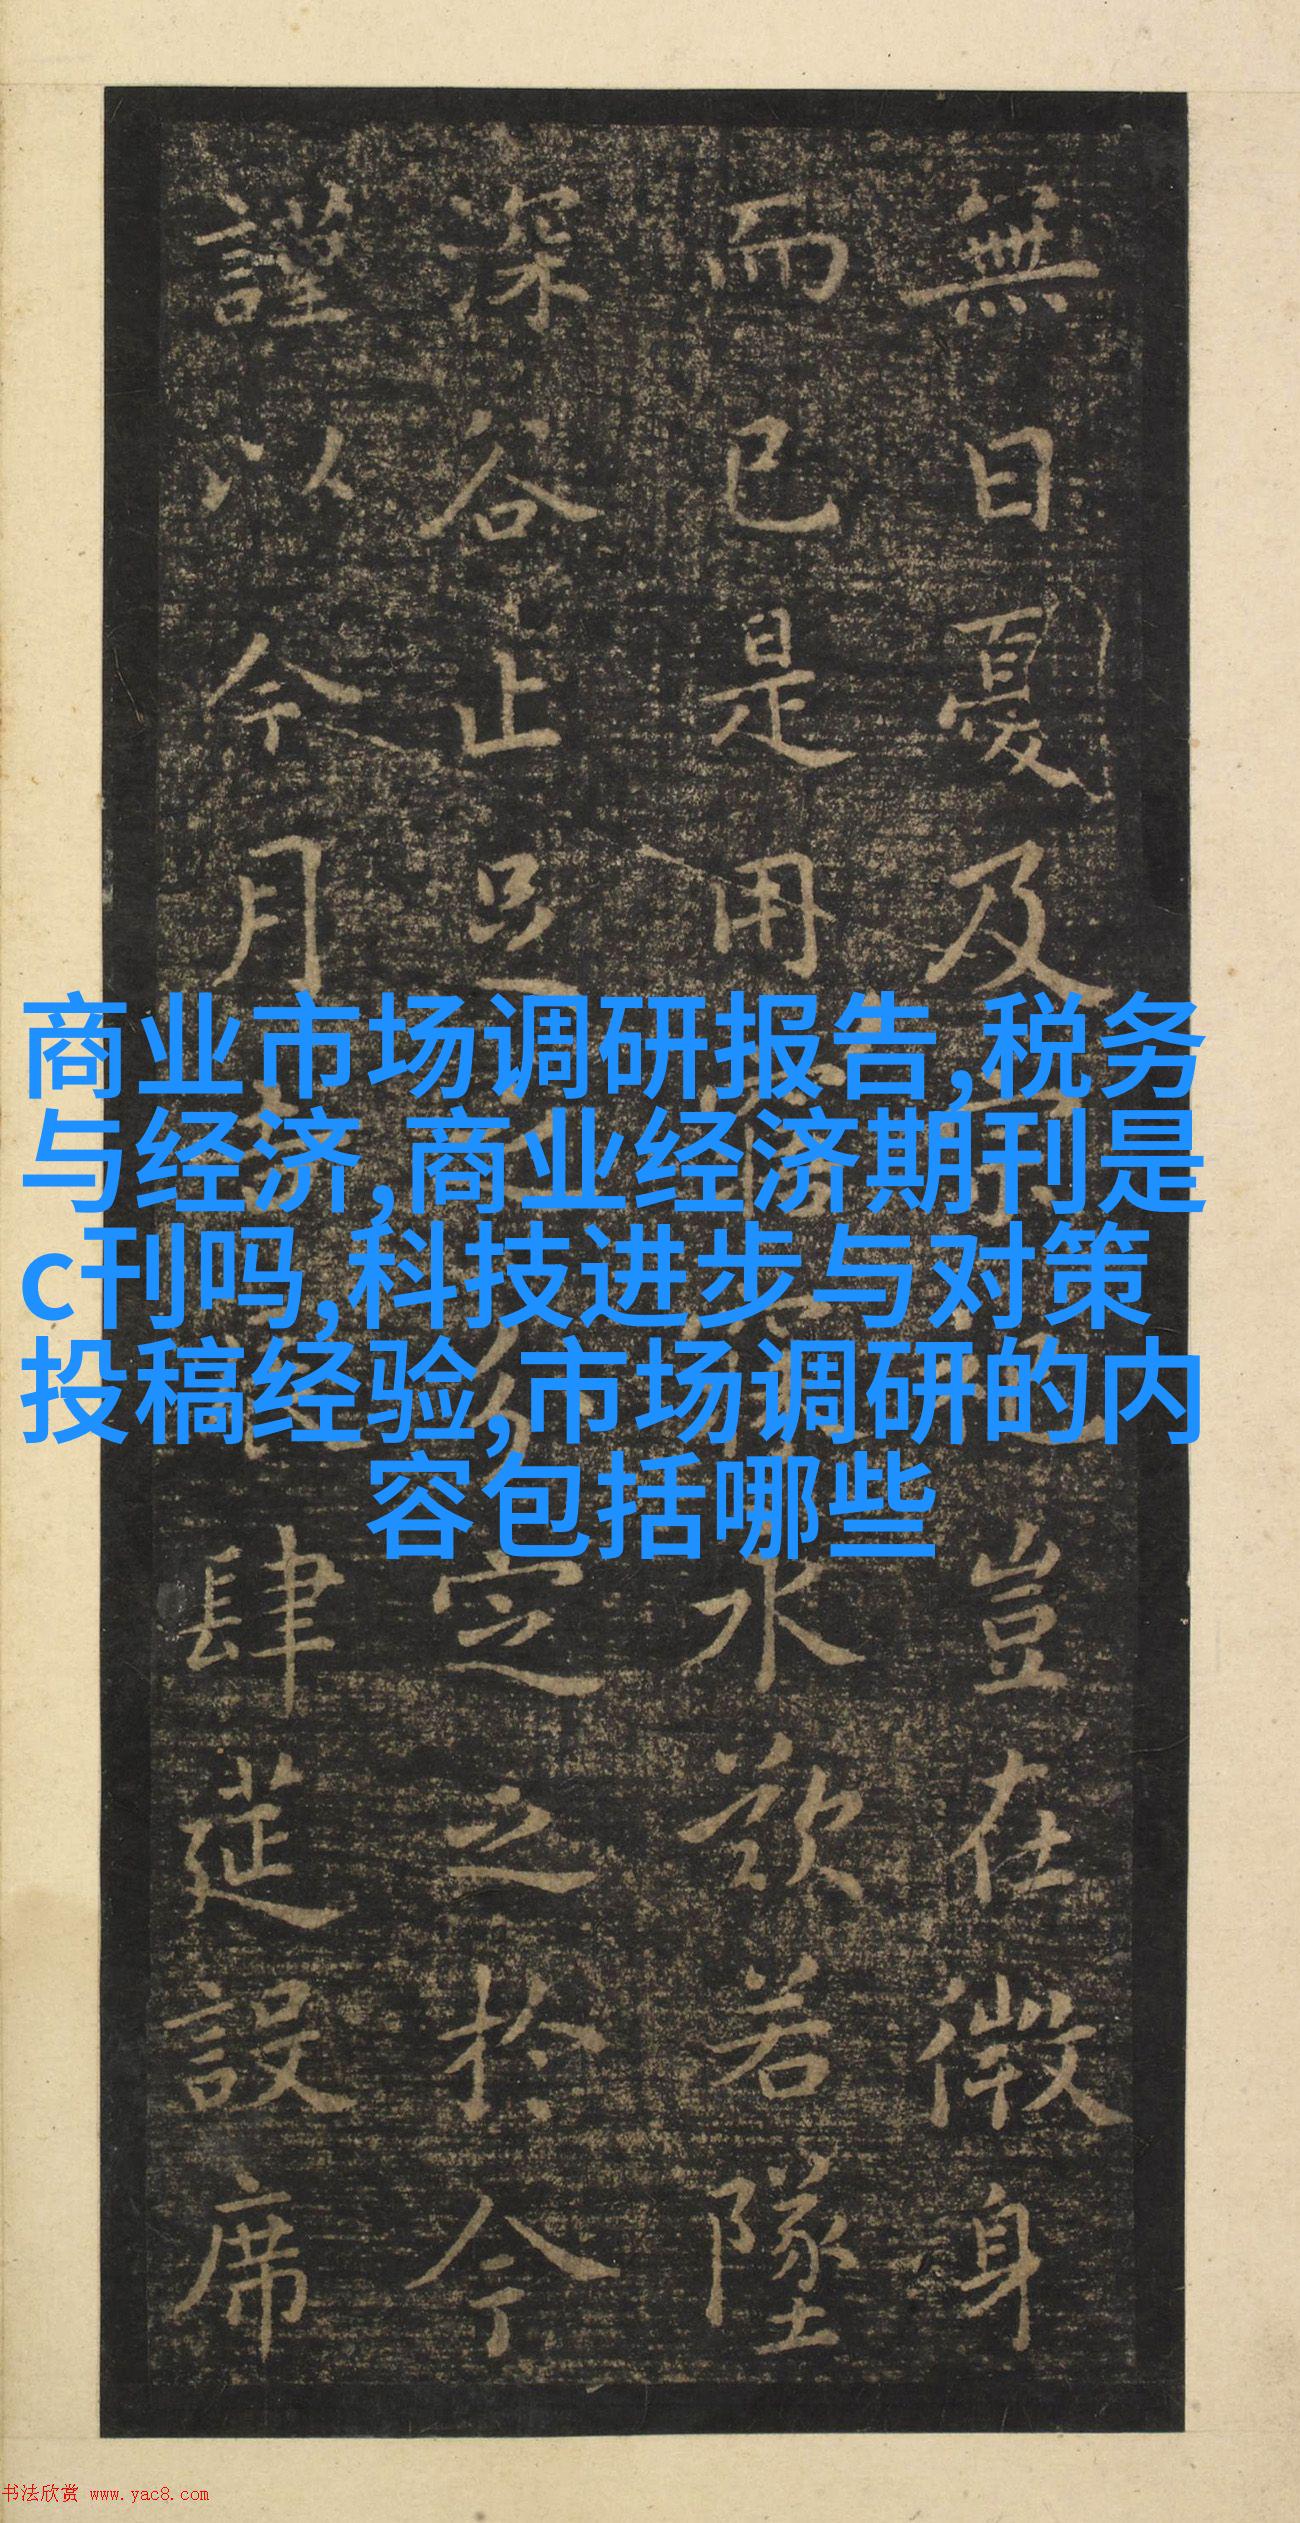 無日憂及豈在微身
而已是用水欲若墜
深谷止足定之於今
謹以今月肆莚設席
商业市场调研报告,税务
与经济,商业经济期刊是
c刊吗,科技进步与对策
投稿经验,市场调研的内
容包括哪些
书法欣赏 www.yac8.com